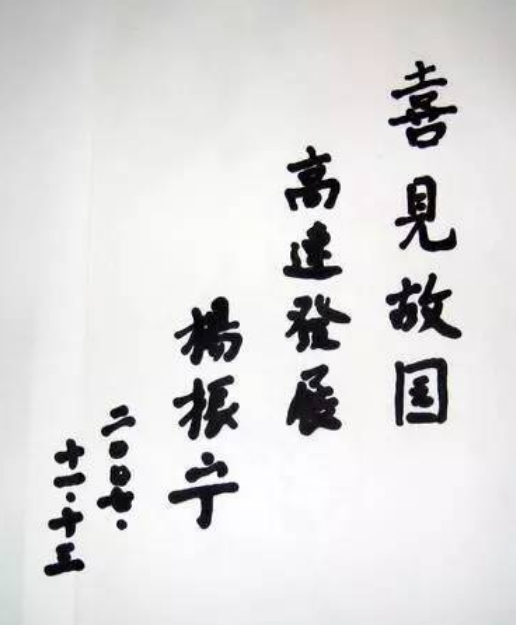 喜見故国
高速發展
楊振宁
二〇〇七.
十一.十三